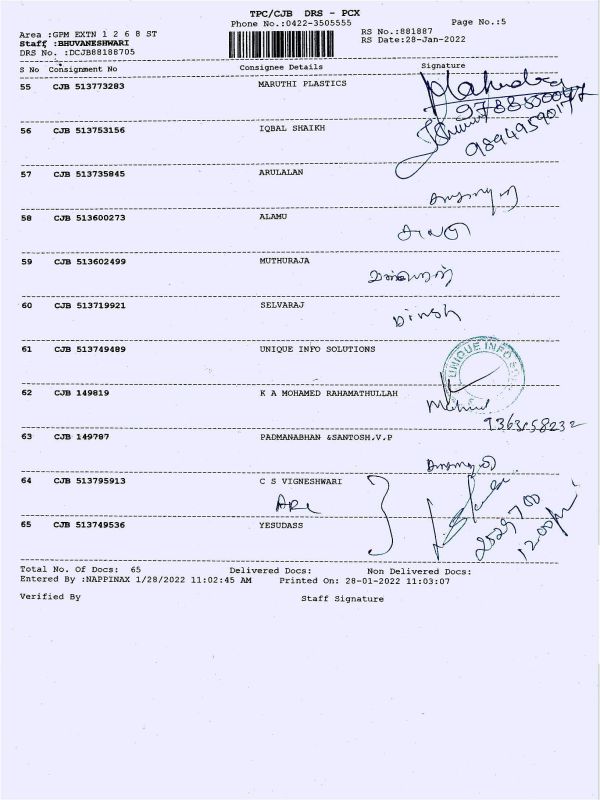 TPC/CJB DRS - PCX
Phone No.:0422-3505555
Page No.:5
Area :GPM EXTN 1 2 6 8 ST
RS No.:881887
Staff :BHUVANESHWARI
RS Date:28-Jan-2022
DRS No. :DCJB88188705
S No Consignment No Consignee Details Signature
55 CJB 513773283 MARUTHI PLASTICS
56 CJB 513753156 IQBAL SHAIKH
9894959017
57 CJB 513735845 ARULALAN
58 CJB 513600273 ALAMU
59 CJB 513602499 MUTHURAJA
60 CJB 513719921 SELVARAJ
Dinsh
61 CJB 513749489 UNIQUE INFO SOLUTIONS
UNIQUE INFO
62 CJB 149819 K A MOHAMED RAHAMATHULLAH
9363158232
63 CJB 149787 PADMANABHAN &SANTOSH,V,P
64 CJB 513795913 C S VIGNESHWARI
2529700
12:00
65 CJB 513749536 YESUDASS
Total No. Of Docs: 65 Delivered Docs: Non Delivered Docs:
Entered By :NAPPINAX 1/28/2022 11:02:45 AM Printed On: 28-01-2022 11:03:07
Verified By Staff Signature